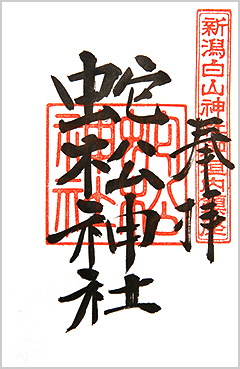 新潟白山神社境内鎮座
奉拝
蛇松神社